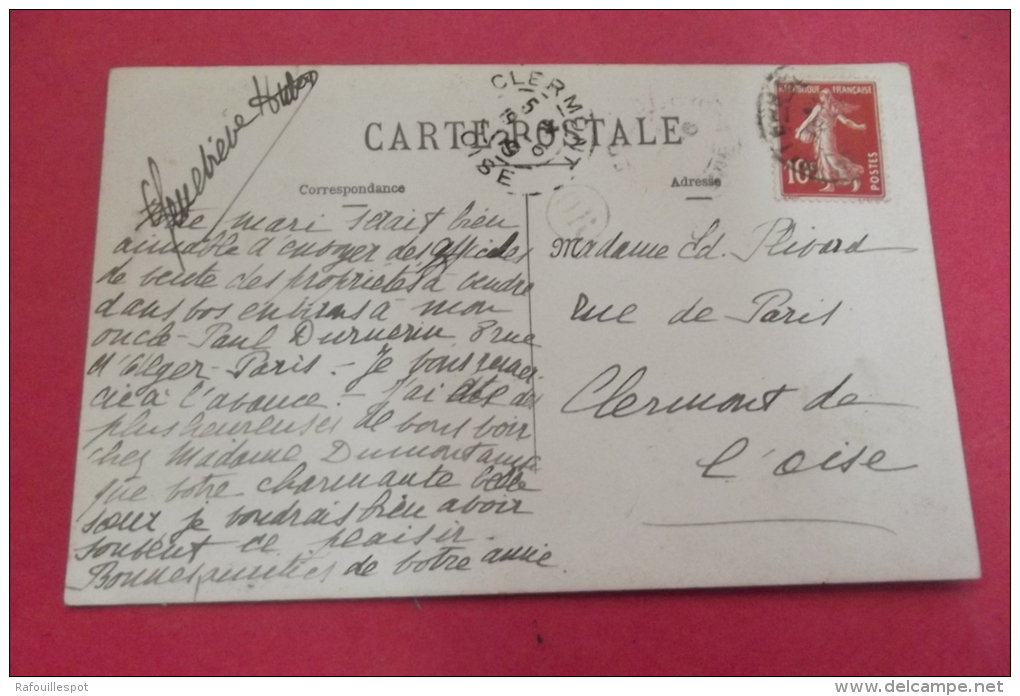 CARTE POSTALE
Correspondance
Adresse
CLERMONT
OISE
REPUBLIQUE FRANÇAISE
10c
POSTES
Genevieve Huber
mari serait bien
aimable d'envoyer des affiches
de vente des propriétés à vendre
dans vos environs à mon
oncle Paul rue
d'Alger - Paris. - Je vous remer
cie à l'avance. - J'ai été des
plus heureuses de vous voir
chez Madame Dumont ainsi
que votre charmante belle
sœur je voudrais bien avoir
souvent ce plaisir.
Bonnes amitiés de votre amie
Madame Ed. Plivard
rue de Paris
Clermont de
l'oise
Rafouillespot
www.delcampe.net